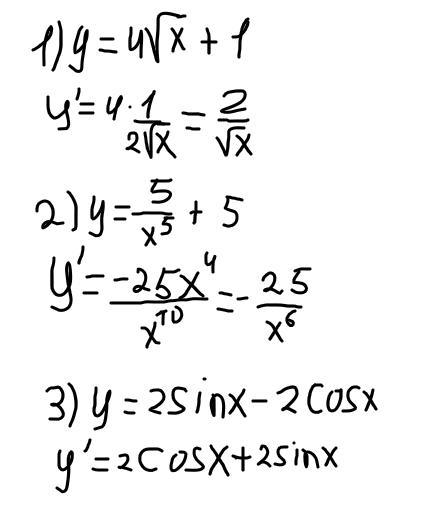 1) y = 4√x + 1
y' = 4 · 1/(2√x) = 2/√x
2) y = 5/x⁵ + 5
y' = -25x⁴/x¹⁰ = - 25/x⁶
3) y = 2sinx - 2cosx
y' = 2cosx + 2sinx